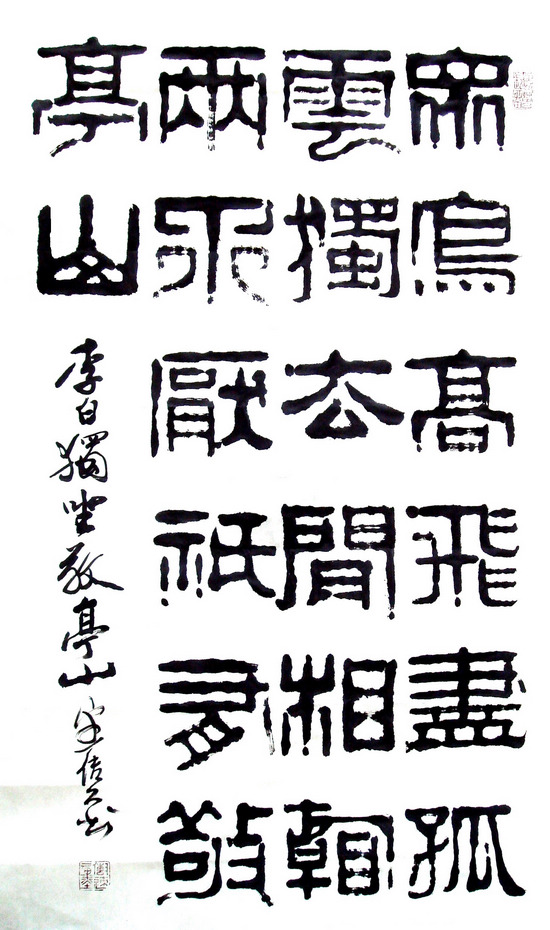 眾鳥高飛盡孤
雲獨去閒相看
兩不厭祇有敬
亭山
李白獨坐敬亭山 書